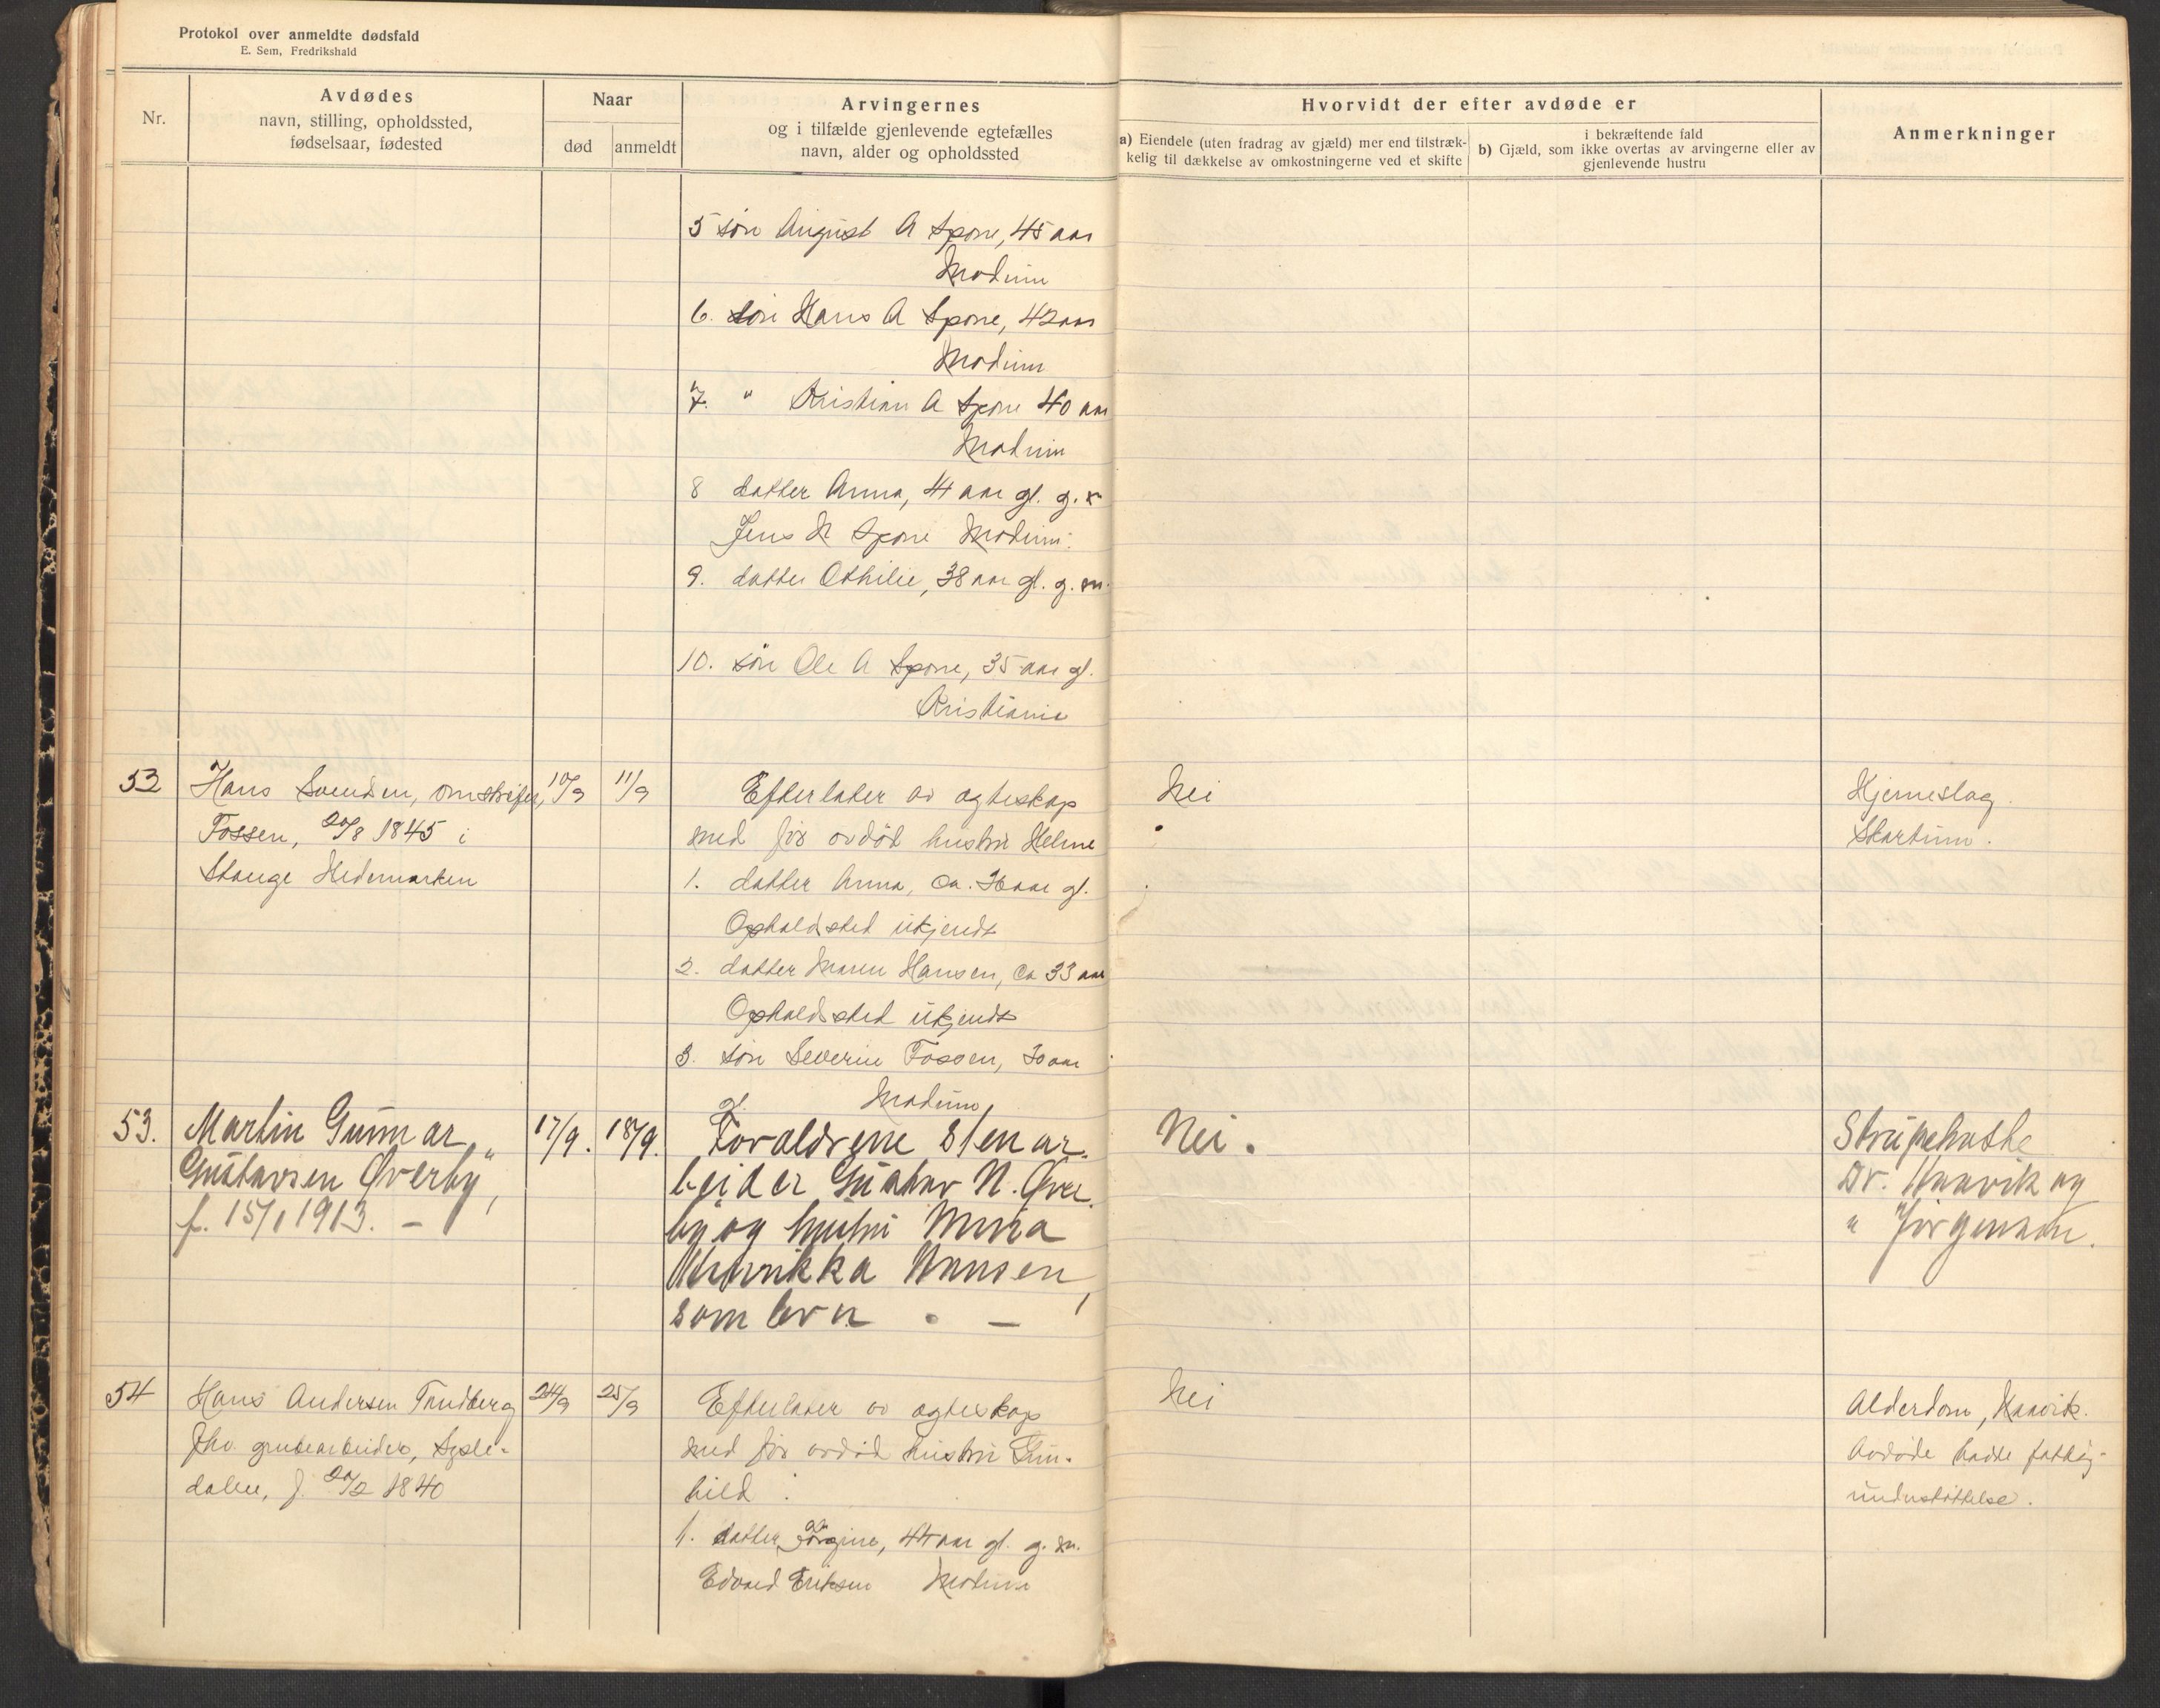 Protokol over anmeldte dødsfald
E. Sem, Fredrikshald
Nr.
Avdødes
navn, stilling, opholdssted,
fødselsaar, fødested
Naar
død
anmeldt
Arvingernes
og i tilfælde gjenlevende egtefælles
navn, alder og opholdssted
Hvorvidt der efter avdøde er
a) Eiendele (uten fradrag av gjæld) mer end tilstræk-
kelig til dækkelse av omkostningerne ved et skifte
i bekræftende fald
b) Gjæld, som ikke overtas av arvingerne eller av
gjenlevende hustru
Anmerkninger
5 søn August A Spone, 45 aar
Modum
6. søn Hans A Spone, 42 aar
Modum
7. " Kristian A Spone 40 aar
Modum
8 datter Anna, 41 aar gl. g. m
Jens H Spone Modum.
9. datter Othilie, 38 aar gl. g. m.
10. søn Ole A Spone, 35 aar gl.
Kristiania
52
Hans Svendsen, omstreifer,
Fossen, 20/8 1845 i
Stange Hedemarken
10/9
11/9
Efterlater av egteskap
med før avdød hustru Helene
1. datter Anna, ca. 36 aar gl.
Opholdssted ukjendt
2. datter Maren Hansen, ca 33 aar
Opholdssted ukjendt
3. søn Severin Fossen, 30 aar
Modum
Nei
Hjerneslag.
Skartum.
53.
Martin Gunnar
Gustavsen Øverby,
f. 15/1 1913. –
17/9.
18/9.
Forældrene Stenar-
beider Gustav N. Øver-
by og hustru Mina
Hansen,
som lever. –
Nei.
Strupehoste
Dr. Haavik og
" Jørgensen.
54
Hans Andersen Tandberg
fhv. grubearbeider, Sysle-
dalen, f. 20/2 1840
24/9
25/9
Efterlater av egteskap
med før avdød hustru Gun-
hild:
1. datter Jørgine, 44 aar gl. g. m.
Edvard Eriksen Modum
Nei
Alderdom, Haavik.
Avdøde hadde fattig-
understøttelse.